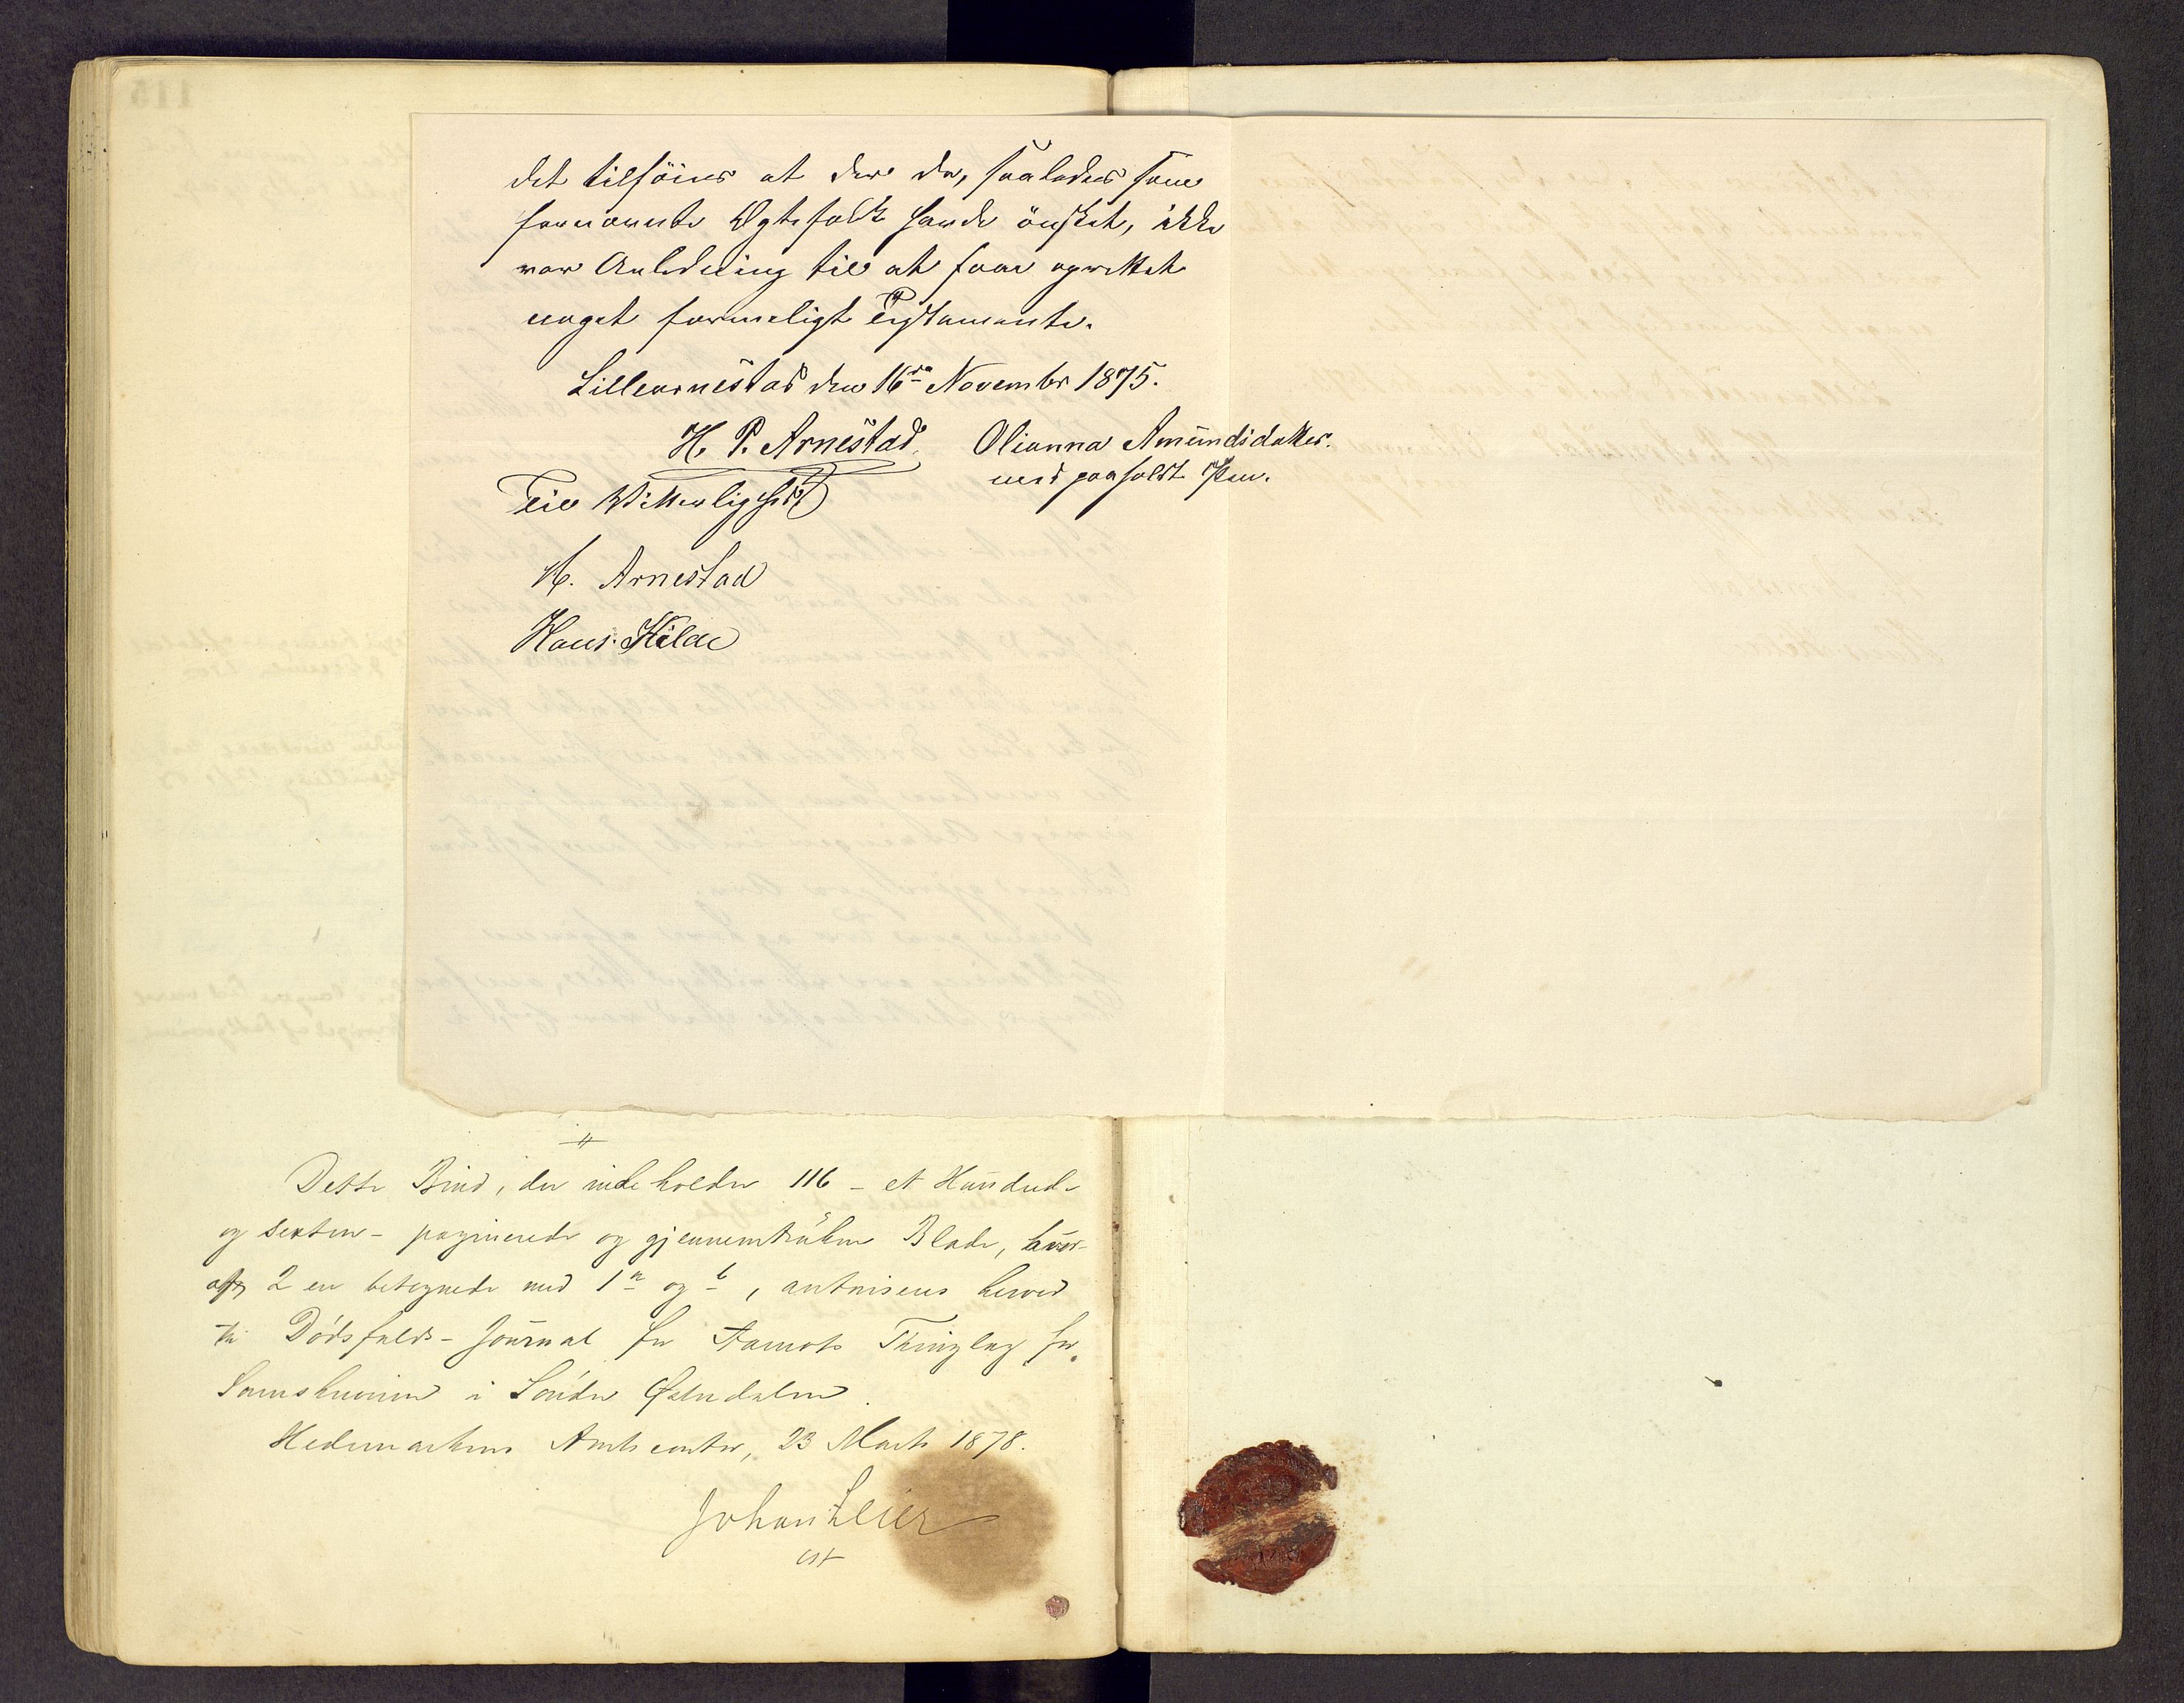 det tilföies at der da, saaledes som
fornævnte Egtefolk havde önsket, ikke
var Anledning til at faae oprettet
noget formeligt Testamente.
Lillearnestad den 16de November 1875.
H. P. Arnestad. Olianna Amundsdatter.
med paaholdt Pen.
Til Vitterlighed
A. Arnestad
Hans Hilde
Dette Bind, der indeholder 116 - et Hundrede
og sexten - paginerede og gjennemtrukne Blade, hvor-
af 2 er betegnede med 1 a og b, autoriseres herved
til Dødsfalds-Journal for Aamots Thinglag for
Sorenskriveren i Søndre Østerdalen.
Hedemarkens Amtscontor, 23 Marts 1878.
Johan
cst